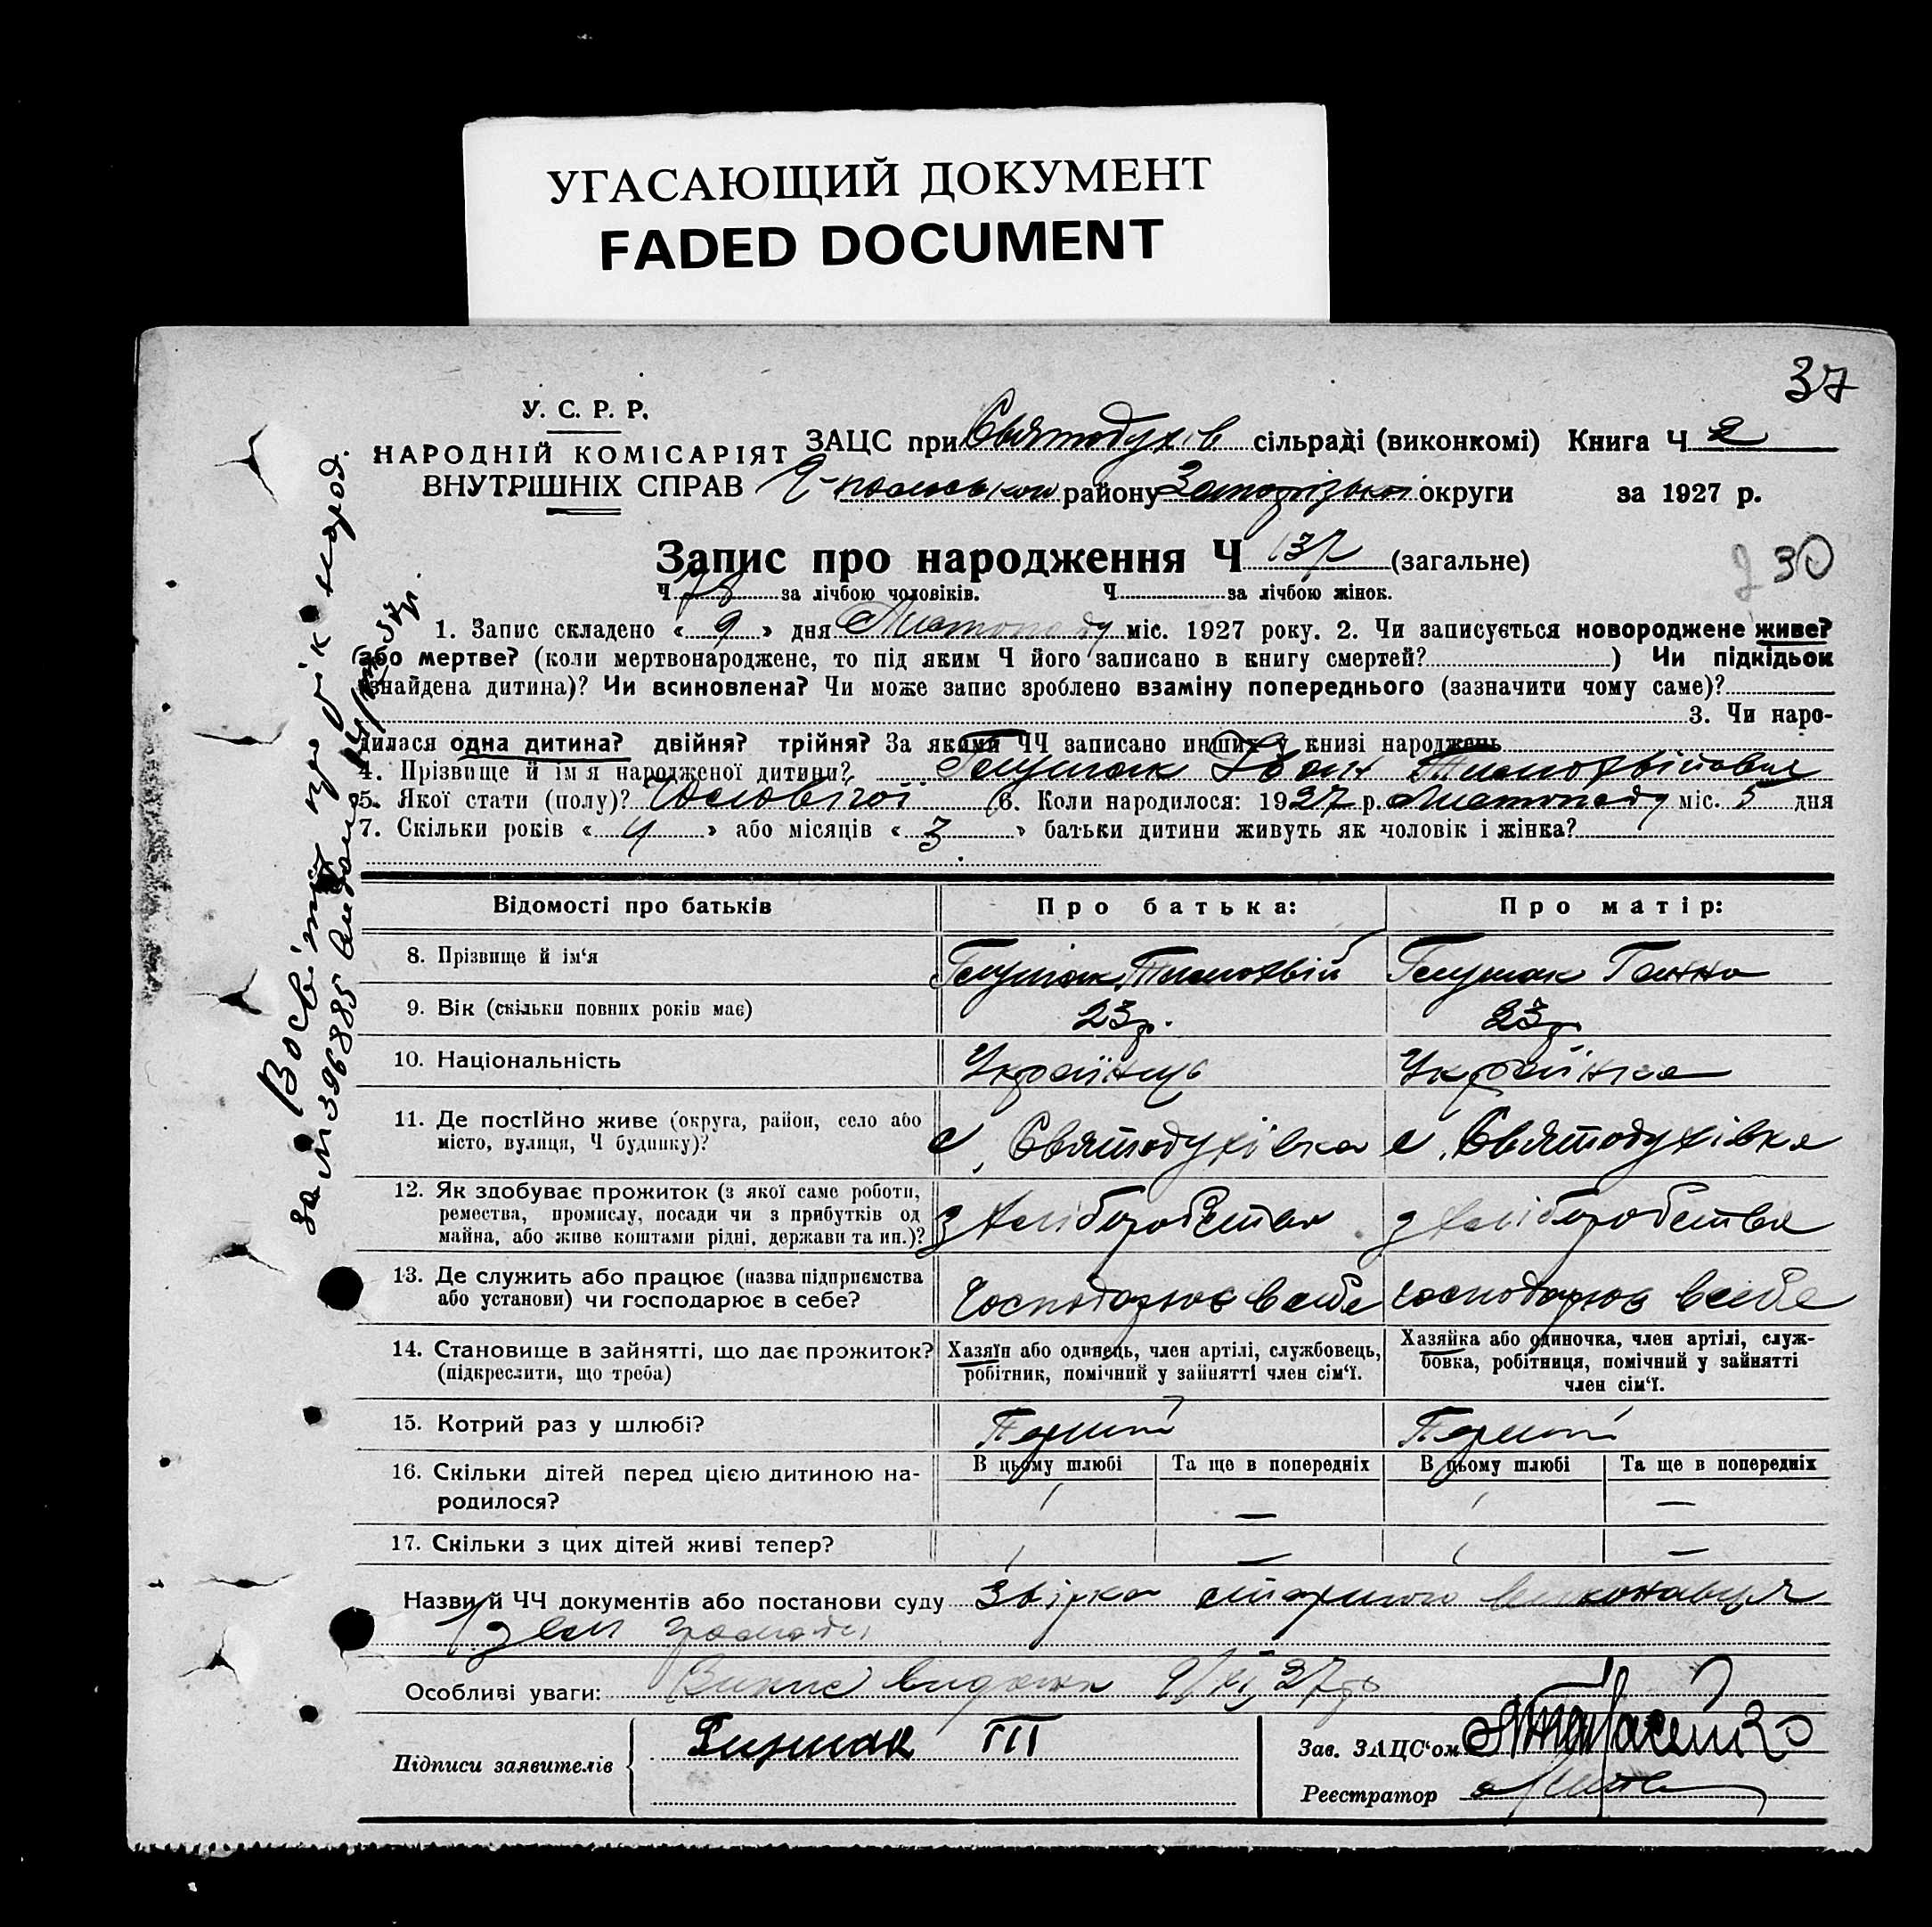 УГАСАЮЩИЙ ДОКУМЕНТ
FADED DOCUMENT
37
У. С. Р. Р.
НАРОДНІЙ КОМІСАРІЯТ
ВНУТРІШНІХ СПРАВ
ЗАЦС при Святодухів сільраді (виконкомі) Книга Ч 2
району Запорізької округи за 1927 р.
Запис про народження Ч 137 (загальне)
230
Ч 78 за лічбою чоловіків. Ч за лічбою жінок.
1. Запис складено « 9 » дня Листопаду міс. 1927 року. 2. Чи записується новороджене живе?
або мертве? (коли мертвонароджене, то під яким Ч його записано в книгу смертей? ) Чи підкідьок
(знайдена дитина)? Чи всиновлена? Чи може запис зроблено взаміну попереднього (зазначити чому саме)?
3. Чи наро-
дилася одна дитина? двійня? трійня? За якими ЧЧ записано инших у книзі народжень
4. Прізвище й ім'я народженої дитини? Іван Тимофійович
5. Якої стати (полу)? Чоловічої 6. Коли народилося: 1927 р. Листопаду міс. 5 дня
7. Скільки років « 4 » або місяців « 3 » батьки дитини живуть як чоловік і жінка?
Відомості про батьків
Про батька:
Про матір:
8. Прізвище й ім'я
Тимофвій
Ганна
9. Вік (скільки повних років має)
23р.
23р
10. Національність
Українець
Українка
11. Де постійно живе (округа, район, село або
місто, вулиця, Ч будинку)?
с. Святодухівка
с. Святодухівка
12. Як здобуває прожиток (з якої саме роботи,
ремества, промислу, посади чи з прибутків од
майна, або живе коштами рідні, держави та ин.)?
з хліборобства
з хліборобства
13. Де служить або працює (назва підприємства
або установи) чи господарює в себе?
господарює в себе
господарює в себе
14. Становище в зайнятті, що дає прожиток?
(підкреслити, що треба)
Хазяїн або одинець, член артілі, службовець,
робітник, помічний у зайнятті член сім'ї.
Хазяйка або одиночка, член артілі, служ-
бовка, робітниця, помічний у зайнятті
член сім'ї.
15. Котрий раз у шлюбі?
Перший
Перший
16. Скільки дітей перед цією дитиною на-
родилося?
В цьому шлюбі
Та ще в попередніх
В цьому шлюбі
Та ще в попередніх
1
—
1
—
17. Скільки з цих дітей живі тепер?
1
—
1
—
Назви й ЧЧ документів або постанови суду виконавця
громади
Особливі уваги: Випис видан 9/XI 27р
Підписи заявителів
Зав. ЗАЦС'ом
Реєстратор
за № 396885